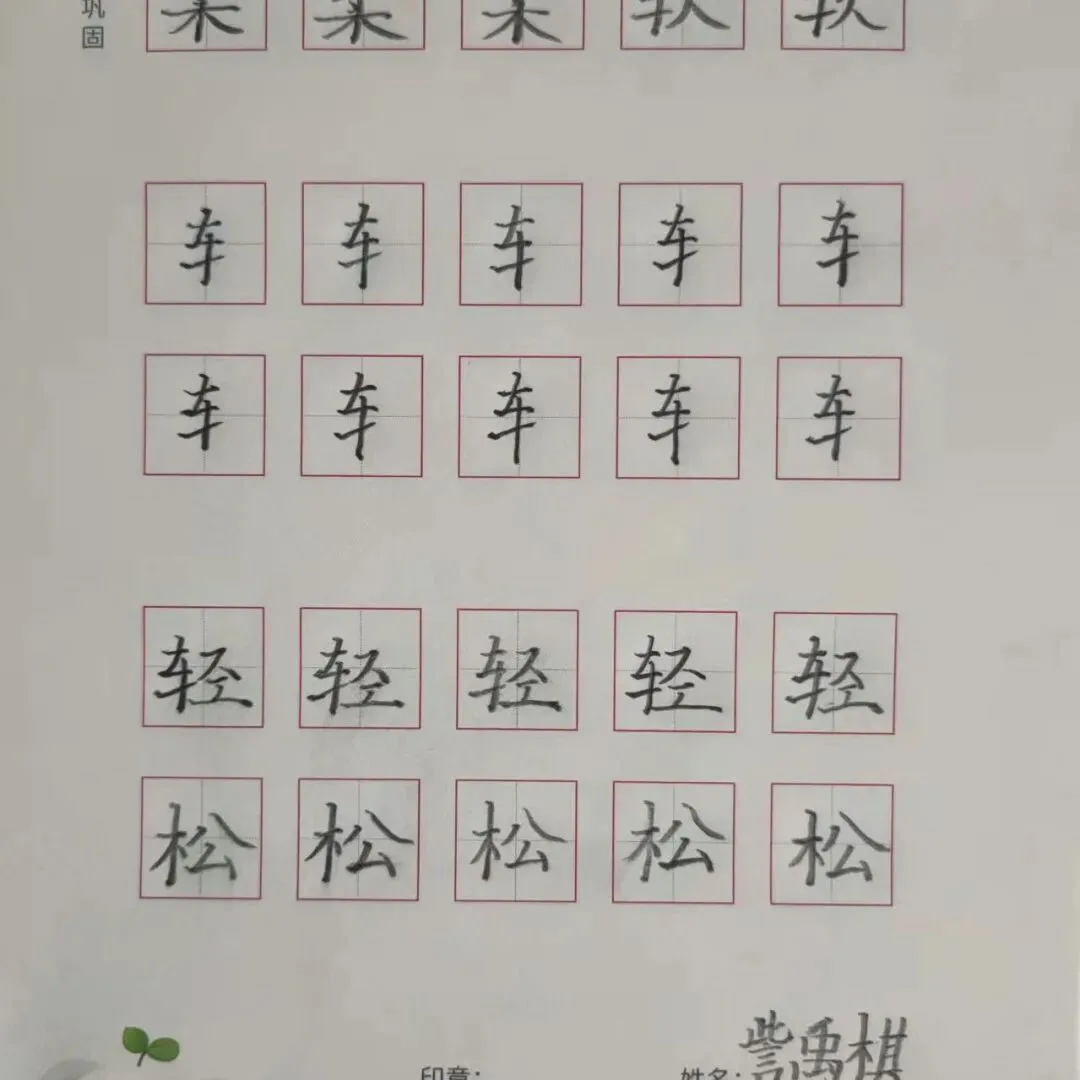 巩固
软 软
车 车 车 车 车
车 车 车 车 车
轻 轻 轻 轻 轻
松 松 松 松 松
印章： 姓名：訾禹棋